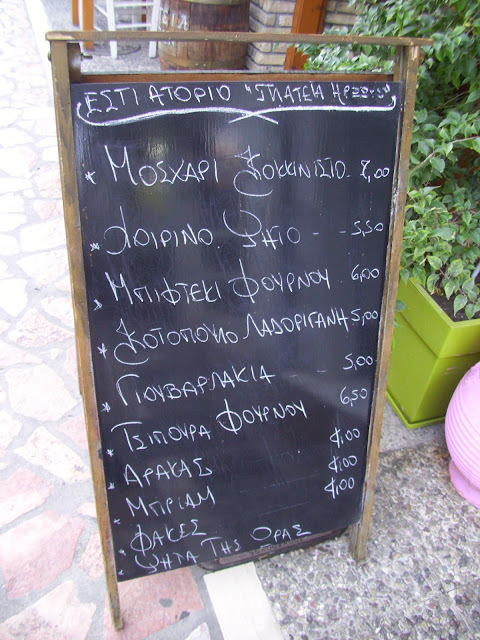 ΕΣΤΙΑΤΟΡΙΟ "ΠΛΑΤΕΙΑ
* ΜΟΣΧΑΡΙ ΚΟΚΚΙΝΙΣΤΟ -
* ΧΟΙΡΙΝΟ ΨΗΤΟ - - 5,50
* ΜΠΙΦΤΕΚΙ ΦΟΥΡΝΟΥ 6,00
* ΚΟΤΟΠΟΥΛΟ ΛΑΔΟΡΙΓΑΝΗ 5,00
* ΓΙΟΥΒΑΡΛΑΚΙΑ - 5,00
* ΤΣΙΠΟΥΡΑ ΦΟΥΡΝΟΥ 6,50
* ΑΡΑΚΑΣ 4,00
* ΜΠΡΙΑΜ 4,00
* ΦΑΚΕΣ 4,00
* ΨΗΤΑ ΤΗΣ ΩΡΑΣ